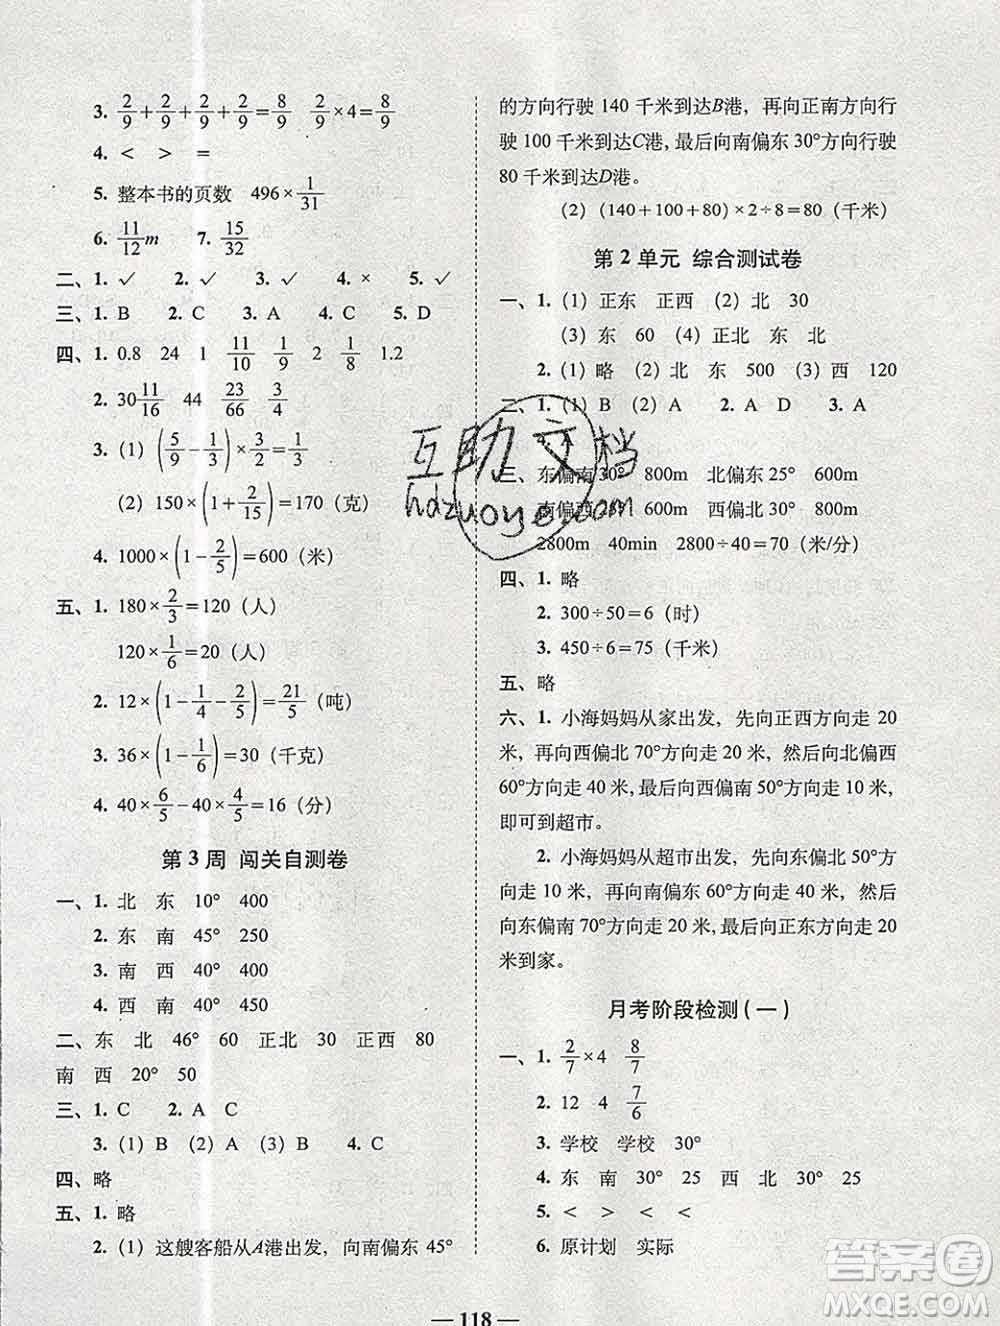 3. 2/9+2/9+2/9+2/9=8/9 2/9×4=8/9
4. < > =
5. 整本书的页数 496×1/31
6. 11/12m 7. 15/32
二、1. ✓ 2. ✓ 3. ✓ 4. × 5. ✓
三、1. B 2. C 3. A 4. C 5. D
四、1. 0.8 24 1 11/10 1/9 2 1/8 1.2
2. 30 11/16 44 23/66 3/4
3. (1) (5/9-1/3)×3/2=1/3
(2) 150×(1+2/15)=170(克)
4. 1000×(1-2/5)=600(米)
五、1. 180×2/3=120(人)
120×1/6=20(人)
2. 12×(1-1/4-2/5)=21/5(吨)
3. 36×(1-1/6)=30(千克)
4. 40×6/5-40×4/5=16(分)
第3周 闯关自测卷
一、1. 北 东 10° 400
2. 东 南 45° 250
3. 南 西 40° 400
4. 西 南 40° 450
二、东 北 46° 60 正北 30 正西 80
南 西 20° 50
三、1. C 2. A C
3. (1) B (2) A (3) B 4. C
四、略
五、1. 略
2. (1) 这艘客船从A港出发，向南偏东 45°
的方向行驶 140 千米到达B港，再向正南方向行
驶 100 千米到达C港，最后向南偏东 30°方向行驶
80 千米到达D港。
(2) (140+100+80)×2÷8=80(千米)
第2单元 综合测试卷
一、1. (1) 正东 正西 (2) 北 30
(3) 东 60 (4) 正北 东 北
2. (1) 略 (2) 北 东 500 (3) 西 120
二、1. (1) B (2) A 2. A D 3. A
三、东偏南30° 800m 北偏东 25° 600m
400m 西偏北 30° 800m
2800m 40min 2800÷40=70(米/分)
四、1. 略
2. 300÷50=6(时)
3. 450÷6=75(千米)
五、略
六、1. 小海妈妈从家出发，先向正西方向走 20
米，再向西偏北 70°方向走 20 米，然后向北偏西
60°方向走 40 米，最后向西偏北 50°方向走 20 米，
即可到超市。
2. 小海妈妈从超市出发，先向东偏北 50°方
向走 10 米，再向南偏东 60°方向走 40 米，然后
向东偏南 70°方向走 20 米，最后向正东方向走 20
米到家。
月考阶段检测(一)
一、1. 2/7×4 8/7
2. 12 4 7/6
3. 学校 学校 30°
4. 东 南 30° 25 西 北 30° 25
5. < > < <
6. 原计划 实际
— 118 —
互助文档
hdzuoye.com
答案圈
MXQE.COM